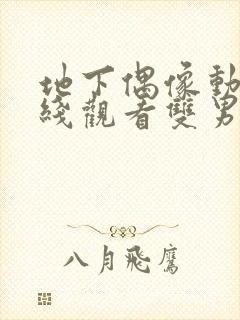 地下偶像動
綫觀看雙男
八月飛鷹